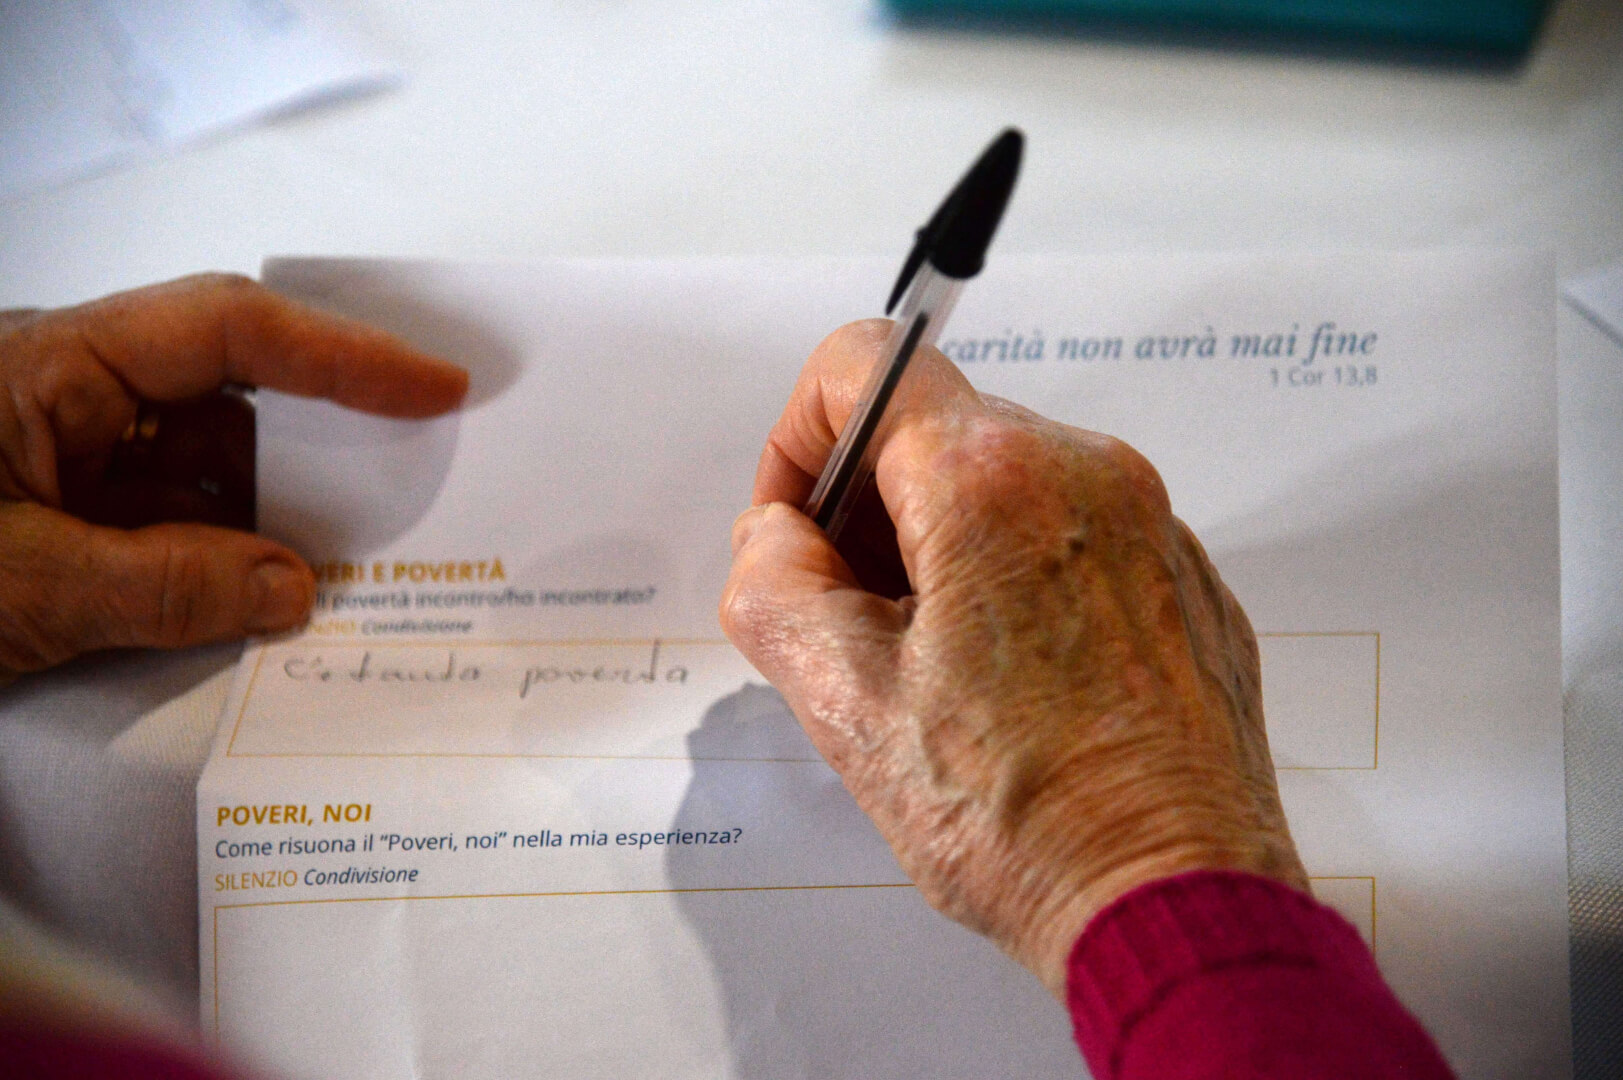 carità non avrà mai fine
1 Cor 13,8
VERI E POVERTÀ
povertà incontro/ho incontrato?
Condivisione
c'è tanta povertà
POVERI, NOI
Come risuona il “Poveri, noi” nella mia esperienza?
SILENZIO Condivisione